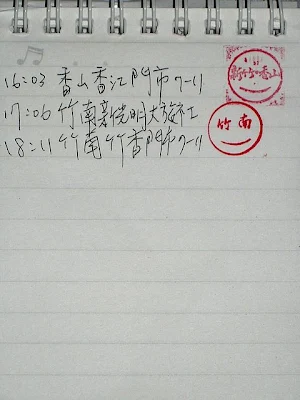 16:03 香山香江門市 7-11
新竹香山
17:06 竹南 光明大 士
竹南
18:11 竹南竹香門市 7-11